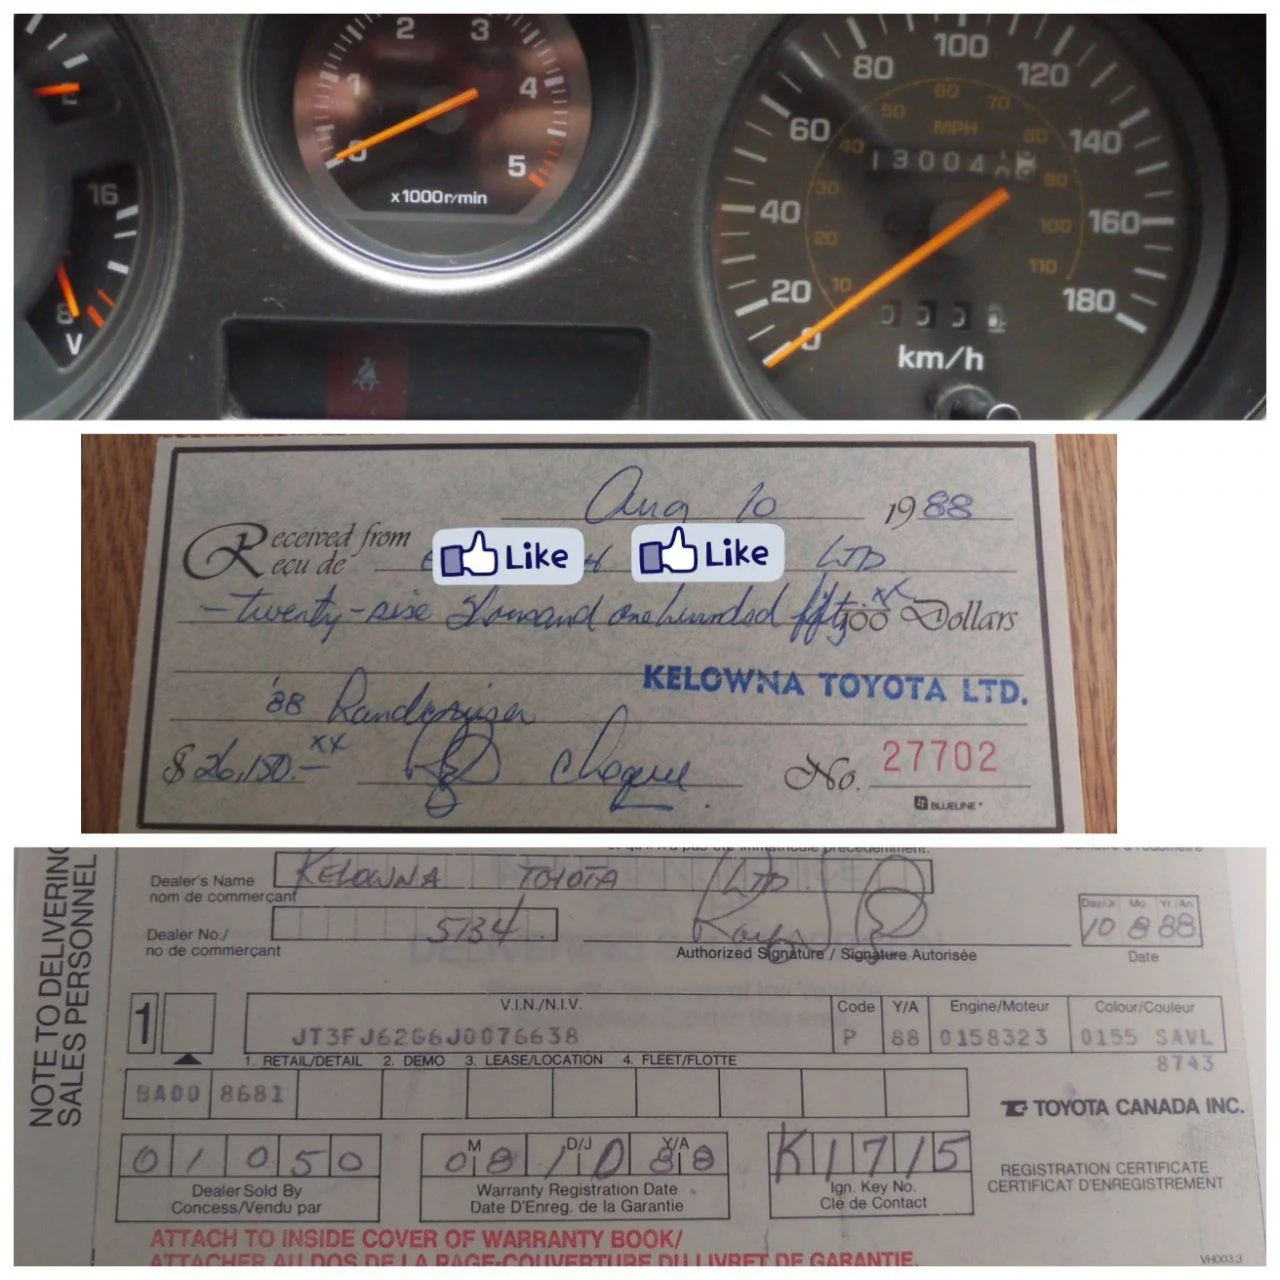 2 3
1 4
0 5
x1000r/min
16
8
V
80 100 120
60 140
40 160
20 180
0
50 60 70
40 80
30 90
20 100
10 110
MPH
13004
0 0 0
km/h
Aug 10 1988
Received from
Reçu de
Like Like LTD
-twenty-six thousand one hundred fifty xx/100 Dollars
KELOWNA TOYOTA LTD.
'88 Landcruiser
$26,150.- xx cheque No. 27702
BLUELINE
NOTE TO DELIVERING
SALES PERSONNEL
Dealer's Name
nom de commerçant
KELOWNA TOYOTA LTD
Dealer No./
no de commerçant
5134
Authorized Signature / Signature Autorisée
Day/Jr. Mo. Yr./An.
10 8 88
Date
1
V.I.N./N.I.V. Code Y/A Engine/Moteur Colour/Couleur
JT3FJ62G6J0076638 P 88 0158323 0155 SAVL
8743
1. RETAIL/DETAIL 2. DEMO 3. LEASE/LOCATION 4. FLEET/FLOTTE
BA00 8681
TOYOTA CANADA INC.
01050
Dealer Sold By
Concess/Vendu par
M D/J Y/A
08 10 88
Warranty Registration Date
Date D'Enreg. de la Garantie
K1715
Ign. Key No.
Clé de Contact
REGISTRATION CERTIFICATE
CERTIFICAT D'ENREGISTREMENT
ATTACH TO INSIDE COVER OF WARRANTY BOOK/
ATTACHER AU DOS DE LA PAGE-COUVERTURE DU LIVRET DE GARANTIE.
VH003.3